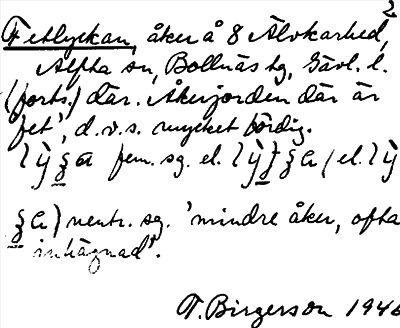 2
Fetlyckan, åker å 8 Älvkarhed,
Alfta sn, Bollnäs tg, Gävl. l.
(forts.) där. Åkerjorden där är
fet', d.v.s. mycket bördig.
fem. sg. el.
neutr. sg. 'mindre åker, ofta
inhägnad'.
T. Birgerson 1946